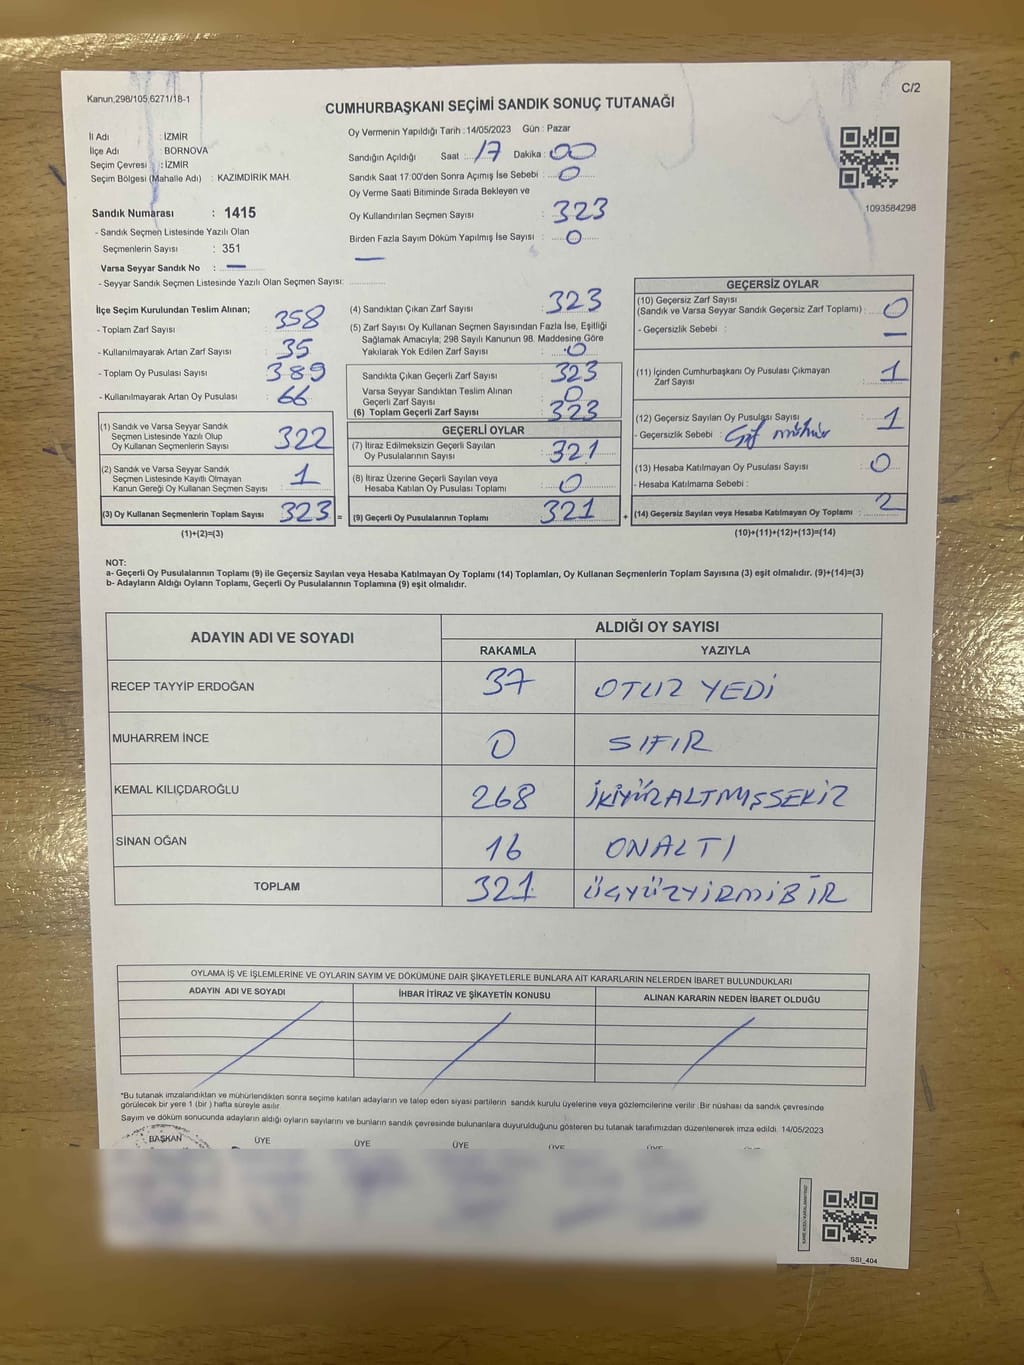 Kanun,298/105,6271/18-1
C/2
CUMHURBAŞKANI SEÇİMİ SANDIK SONUÇ TUTANAĞI
İl Adı : İZMİR
İlçe Adı : BORNOVA
Seçim Çevresi : İZMİR
Seçim Bölgesi (Mahalle Adı) : KAZIMDİRİK MAH.
Sandık Numarası : 1415
- Sandık Seçmen Listesinde Yazılı Olan
Seçmenlerin Sayısı : 351
Varsa Seyyar Sandık No : —
- Seyyar Sandık Seçmen Listesinde Yazılı Olan Seçmen Sayısı:
Oy Vermenin Yapıldığı Tarih : 14/05/2023 Gün : Pazar
Sandığın Açıldığı Saat : 17 Dakika : 00
Sandık Saat 17:00'den Sonra Açımış İse Sebebi : 0
Oy Verme Saati Bitiminde Sırada Bekleyen ve
Oy Kullandırılan Seçmen Sayısı : 323
Birden Fazla Sayım Döküm Yapılmış İse Sayısı : 0
—
1093584298
İlçe Seçim Kurulundan Teslim Alınan;
- Toplam Zarf Sayısı : 358
- Kullanılmayarak Artan Zarf Sayısı : 35
- Toplam Oy Pusulası Sayısı : 389
- Kullanılmayarak Artan Oy Pusulası : 66
(1) Sandık ve Varsa Seyyar Sandık
Seçmen Listesinde Yazılı Olup
Oy Kullanan Seçmenlerin Sayısı : 322
(2) Sandık ve Varsa Seyyar Sandık
Seçmen Listesinde Kayıtlı Olmayan
Kanun Gereği Oy Kullanan Seçmen Sayısı : 1
(3) Oy Kullanan Seçmenlerin Toplam Sayısı : 323 =
(1)+(2)=(3)
(4) Sandıktan Çıkan Zarf Sayısı : 323
(5) Zarf Sayısı Oy Kullanan Seçmen Sayısından Fazla İse, Eşitliği
Sağlamak Amacıyla; 298 Sayılı Kanunun 98. Maddesine Göre
Yakılarak Yok Edilen Zarf Sayısı : 0
Sandıkta Çıkan Geçerli Zarf Sayısı : 323
Varsa Seyyar Sandıktan Teslim Alınan
Geçerli Zarf Sayısı : 0
(6) Toplam Geçerli Zarf Sayısı : 323
GEÇERLİ OYLAR
(7) İtiraz Edilmeksizin Geçerli Sayılan
Oy Pusulalarının Sayısı : 321
(8) İtiraz Üzerine Geçerli Sayılan veya
Hesaba Katılan Oy Pusulası Toplamı : 0
(9) Geçerli Oy Pusulalarının Toplamı : 321 +
GEÇERSİZ OYLAR
(10) Geçersiz Zarf Sayısı
(Sandık ve Varsa Seyyar Sandık Geçersiz Zarf Toplamı) : 0
- Geçersizlik Sebebi : —
(11) İçinden Cumhurbaşkanı Oy Pusulası Çıkmayan
Zarf Sayısı : 1
(12) Geçersiz Sayılan Oy Pusulası Sayısı : 1
- Geçersizlik Sebebi : Çift mühür
(13) Hesaba Katılmayan Oy Pusulası Sayısı : 0
- Hesaba Katılmama Sebebi :
(14) Geçersiz Sayılan veya Hesaba Katılmayan Oy Toplamı : 2
(10)+(11)+(12)+(13)=(14)
NOT:
a- Geçerli Oy Pusulalarının Toplamı (9) ile Geçersiz Sayılan veya Hesaba Katılmayan Oy Toplamı (14) Toplamları, Oy Kullanan Seçmenlerin Toplam Sayısına (3) eşit olmalıdır. (9)+(14)=(3)
b- Adayların Aldığı Oyların Toplamı, Geçerli Oy Pusulalarının Toplamına (9) eşit olmalıdır.
ADAYIN ADI VE SOYADI ALDIĞI OY SAYISI
RAKAMLA YAZIYLA
RECEP TAYYİP ERDOĞAN 37 OTUZ YEDİ
MUHARREM İNCE 0 SIFIR
KEMAL KILIÇDAROĞLU 268 İKİYÜZALTMIŞSEKİZ
SİNAN OĞAN 16 ONALTI
TOPLAM 321 ÜÇYÜZYİRMİBİR
OYLAMA İŞ VE İŞLEMLERİNE VE OYLARIN SAYIM VE DÖKÜMÜNE DAİR ŞİKAYETLERLE BUNLARA AİT KARARLARIN NELERDEN İBARET BULUNDUKLARI
ADAYIN ADI VE SOYADI İHBAR İTİRAZ VE ŞİKAYETİN KONUSU ALINAN KARARIN NEDEN İBARET OLDUĞU
*Bu tutanak imzalandıktan ve mühürlendikten sonra seçime katılan adayların ve talep eden siyasi partilerin sandık kurulu üyelerine veya gözlemcilerine verilir. Bir nüshası da sandık çevresinde
görülecek bir yere 1 (bir) hafta süreyle asılır.
Sayım ve döküm sonucunda adayların aldığı oyların sayılarını ve bunların sandık çevresinde bulunanlara duyurulduğunu gösteren bu tutanak tarafımızdan düzenlenerek imza edildi. 14/05/2023
BAŞKAN ÜYE ÜYE ÜYE ÜYE ÜYE
SSI_404